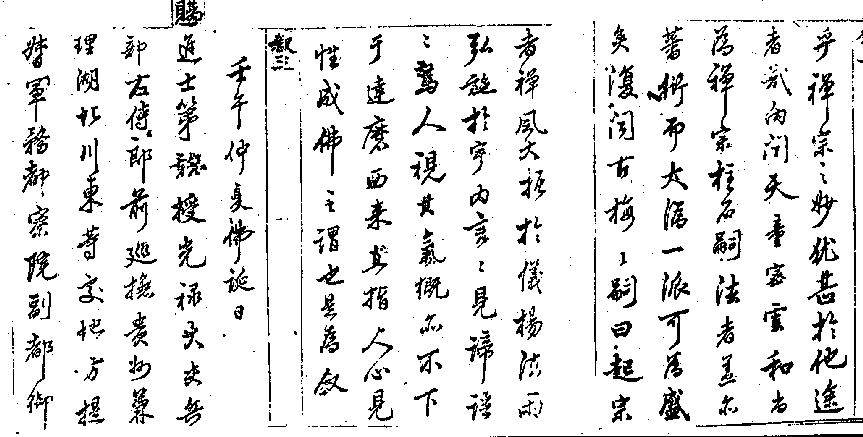 乎禪宗之妙猶甚於他途
者哉內閣天童密雲和尚
為禪宗柱石嗣法者甚
著衍而大溈一派可為盛
矣復閱古梅之嗣曰起宗
者禪風大振於儀揚法雨
弘施於宇內言言見諦語
語驚人視其氣概亦不下
于達磨西來直指人心見
性成佛之謂也是為敘
敘三
壬午仲夏佛誕日
賜
進士第 授光祿大夫兵
部右侍郎前巡撫貴州兼
理湖北川東等處地方提
督軍務都察院副都御